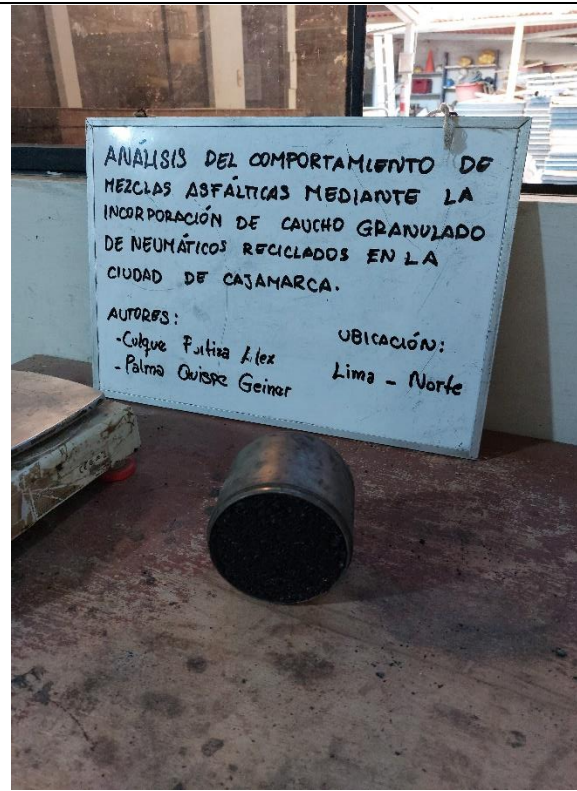 ANÁLISIS DEL COMPORTAMIENTO DE
MEZCLAS ASFÁLTICAS MEDIANTE LA
INCORPORACIÓN DE CAUCHO GRANULADO
DE NEUMÁTICOS RECICLADOS EN LA
CIUDAD DE CAJAMARCA.
AUTORES:
-Culque
- Palma Quispe Geiner
UBICACIÓN:
Lima - Norte